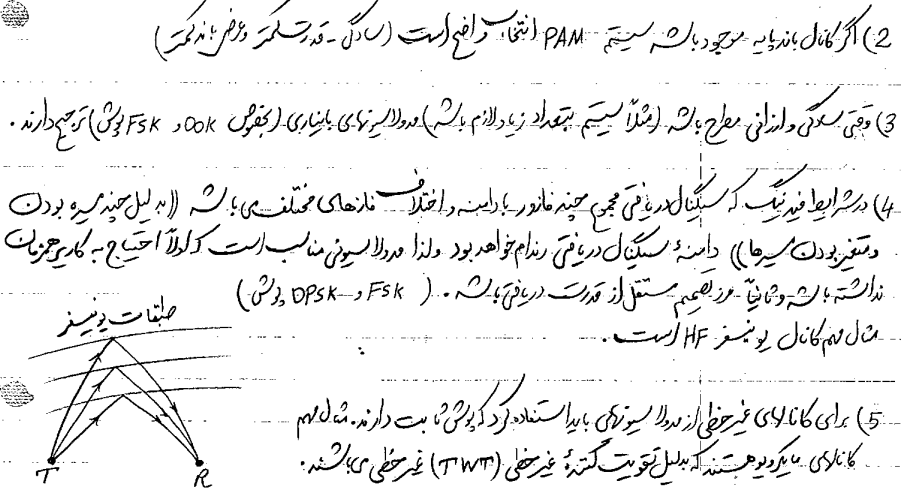 2) اگر کانال باند پایه موجود باشد سیستم PAM انتخاب واضح است (سادگی - قدرت کمتر و عرض باند کمتر)
3) وقتی سادگی و ارزانی مطرح باشد (مثلاً سیستم بتعداد زیاد لازم باشد) مدولاسیونهای باینری (بخصوص OOK و FSK پوش) ترجیح دارند.
4) در شرایط فیدینگ که سیگنال دریافتی مجموع چند فازور با دامنه و اختلاف فازهای مختلف می باشد ((به دلیل چند مسیره بودن
و متغیر بودن مسیرها)) دامنهٔ سیگنال دریافتی رندام خواهد بود ولذا مدولاسیونی مناسب است که اولاً احتیاج به کاریر همزمان
نداشته باشد و ثانیاً مرز تصمیم مستقل از قدرت دریافتی باشد. (FSK و DPSK پوش)
مثال مهم کانال یونیسفر HF است.
طبقات یونیسفر
T
R
5) برای کانالهای غیرخطی از مدولاسیونهای باید استفاده کرد که پوش ثابت دارند. مثال مهم
کانالهای مایکروویو هستند که بدلیل تقویت کنندهٔ غیرخطی (TWT) غیرخطی می باشند.